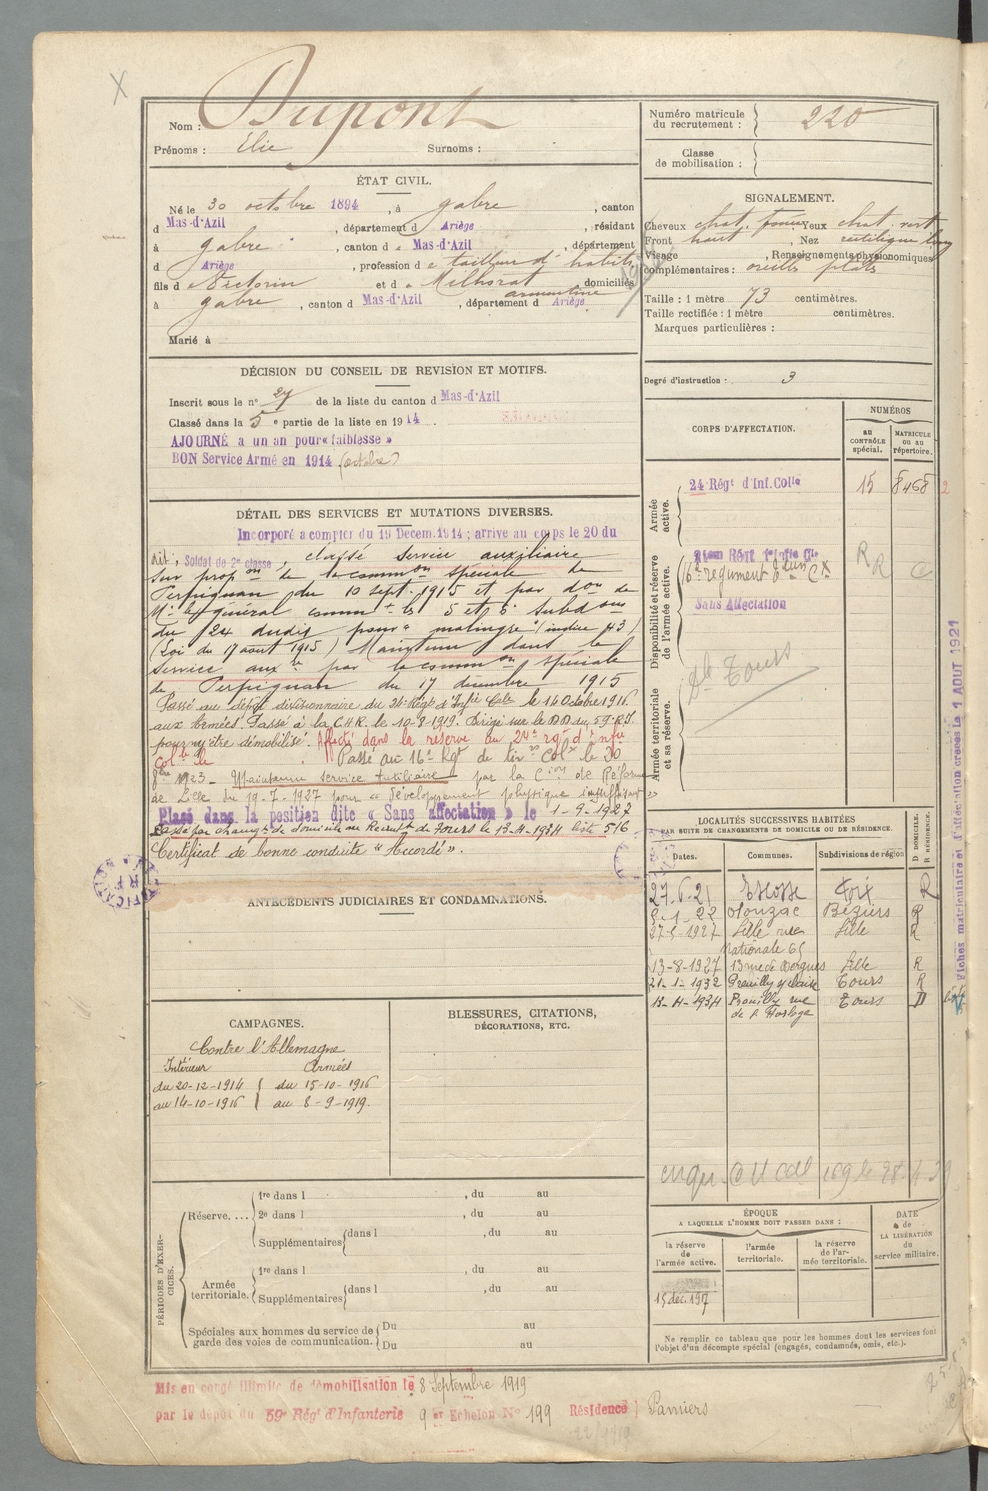 Nom : Dupont
Prénoms : Elie Surnoms :
Numéro matricule
du recrutement : 220
Classe
de mobilisation :
ÉTAT CIVIL.
Né le 30 octobre 1894, à Gabre, canton
d Mas-d'Azil, département d Ariège, résidant
à Gabre, canton d Mas-d'Azil, département
d Ariège, profession d e tailleur d'habits
fils d e Victorin et d e Milhorat Armentine domiciliés
à Gabre, canton d Mas-d'Azil, département d Ariège
Marié à
SIGNALEMENT.
Cheveux chat. foncé Yeux chat. vert
Front haut, Nez rectiligne long
Visage, Renseignements physionomiques
complémentaires : oreilles plates
Taille : 1 mètre 73 centimètres.
Taille rectifiée : 1 mètre centimètres.
Marques particulières :
Degré d'instruction : 3
DÉCISION DU CONSEIL DE REVISION ET MOTIFS.
Inscrit sous le n° 27 de la liste du canton d Mas-d'Azil
Classé dans la 5 e partie de la liste en 1914.
AJOURNÉ à un an pour « faiblesse »
BON Service Armé en 1914 (octobre)
DÉTAIL DES SERVICES ET MUTATIONS DIVERSES.
Incorporé à compter du 19 Décem. 1914 ; arrivé au corps le 20 du
dit, Soldat de 2e classe, classé service auxiliaire
sur propon de la common spéciale de
Perpignan du 10 sept. 1915 et par don de
Mr le général commt les 5 et 6e Subdons
du 24 dudit pour « malingre » (indice 43)
(Loi du 17 août 1915) Maintenu dans le
service auxre par la common spéciale
de Perpignan du 17 décembre 1915
Passé au dépôt divisionnaire du 24e Régt d'Infie Cole le 14 Octobre 1916.
aux Armées. Passé à la C.H.R. le 10-8-1919. Dirigé sur le D.D. du 59e R.I.
pour y être démobilisé. Affecté dans la réserve au 24e rgt d'Infie
Colle le Passé au 16e Rgt de tirrs Colx le 30
8bre 1923 - Maintenu service Auxiliaire par la Cion de Réforme
de Lille du 19-7-1927 pour « développement physique insuffisant »
Placé dans la position dite « Sans affectation » le 1-9-1927
Passé par changt de domicile au Recrutt de Tours le 13-4-1934 liste 516
Certificat de bonne conduite « Accordé ».
ANTÉCÉDENTS JUDICIAIRES ET CONDAMNATIONS.
CAMPAGNES.
Contre l'Allemagne
Intérieur Armées
du 20-12-1914 du 15-10-1916
au 14-10-1916 au 8-9-1919.
BLESSURES, CITATIONS,
DÉCORATIONS, ETC.
PÉRIODES D'EXER-
CICES.
Réserve....
1re dans l , du au
2e dans l , du au
Supplémentaires dans l , du au
Armée
territoriale.
1re dans l , du au
Supplémentaires dans l , du au
Spéciales aux hommes du service de
garde des voies de communication.
Du au
Du au
CORPS D'AFFECTATION.
NUMÉROS
au
CONTRÔLE
spécial.
MATRICULE
ou au
répertoire.
Armée
active.
24 Régt d'Inf. Colle 15 8468 2
Disponibilité et réserve
de l'armée active.
16e régiment de Tirrs Cx
R R
C
Sans Affectation
Armée territoriale
et sa réserve.
Dle Tours
LOCALITÉS SUCCESSIVES HABITÉES
PAR SUITE DE CHANGEMENTS DE DOMICILE OU DE RÉSIDENCE.
Dates. Communes. Subdivisions de région
D DOMICILE.
R RÉSIDENCE.
27.6.21 Foix R
5-1-22 Olonzac Béziers R
27-5-1927 Lille rue Lille R
Nationale 65
13-8-1927 13 rue de Bergues Lille R
21-1-1932 Preuilly s/Claise Tours R
13-4-1934 Preuilly rue Tours D
de l'Horloge
ÉPOQUE
A LAQUELLE L'HOMME DOIT PASSER DANS :
la réserve
de
l'armée active.
l'armée
territoriale.
la réserve
de l'ar-
mée territoriale.
DATE
de
LA LIBÉRATION
du
service militaire.
15 déc. 1917
Ne remplir ce tableau que pour les hommes dont les services font
l'objet d'un décompte spécial (engagés, condamnés, omis, etc.).
Fiches matriculaire et d'affectation créées le 1 AOUT 1921
Mis en congé illimité de démobilisation le 8 Septembre 1919
par le dépôt du 59e Régt d'Infanterie 9 er Echelon N° 199 Résidence Pamiers